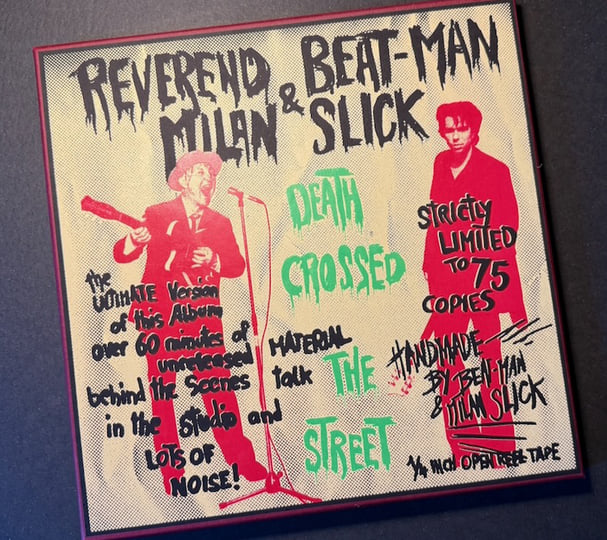 REVEREND BEAT-MAN
& MILAN SLICK
DEATH
CROSSED
THE
STREET
STRICTLY
LIMITED
TO 75
COPIES
the
ULTIMATE Version
of this Album
over 60 minutes of
unreleased MATERIAL
behind the Scenes talk
in the Studio and
LOTS OF
NOISE!
HANDMADE
BY BEAT-MAN
& MILAN SLICK
1/4 INCH OPEN REEL TAPE